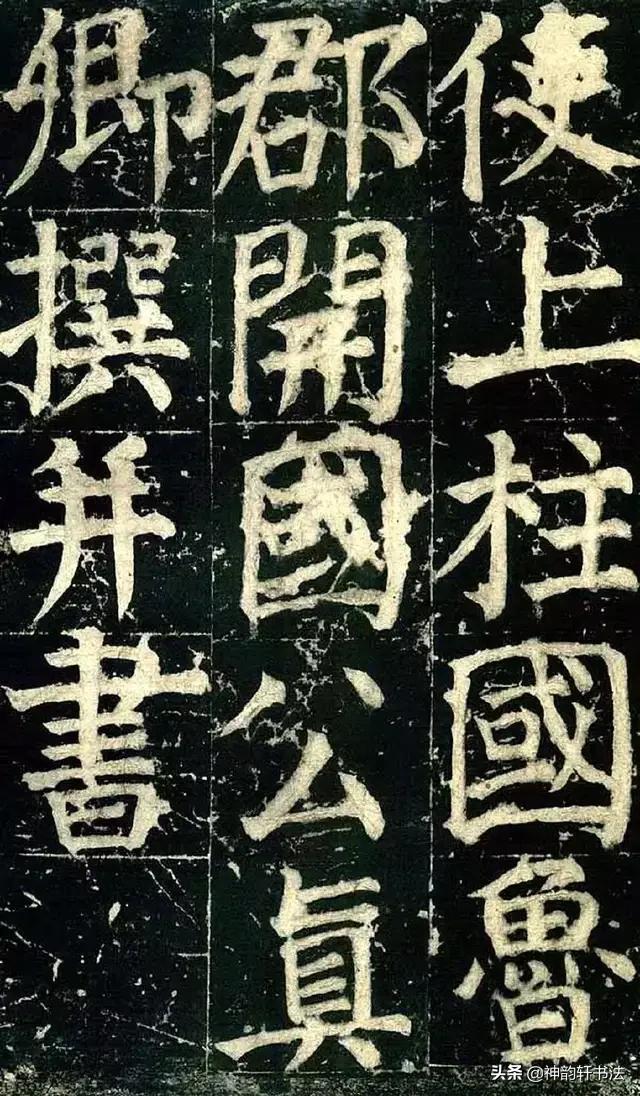 使上柱國魯
郡開國公真
卿撰并書
头条 @神韵轩书法